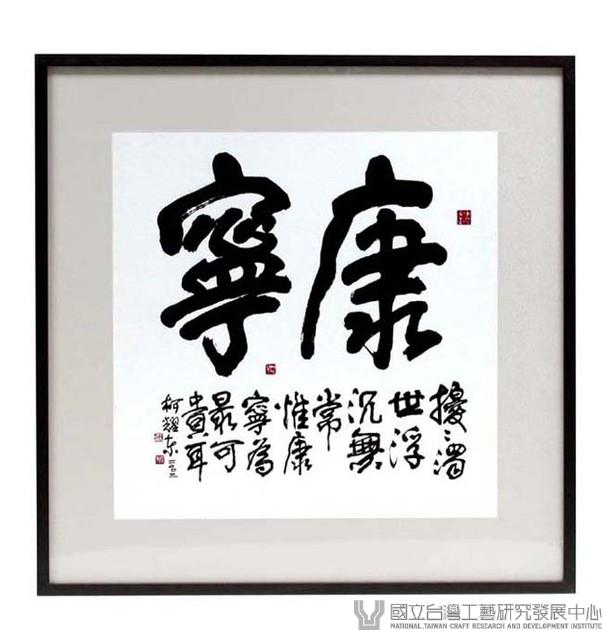 康寧
擾〻濁
世浮
沉無
常
惟康
寧為
最可
貴耳
柯耀东二〇〇二
國立台灣工藝研究發展中心
NATIONAL TAIWAN CRAFT RESEARCH AND DEVELOPMENT INSTITUTE